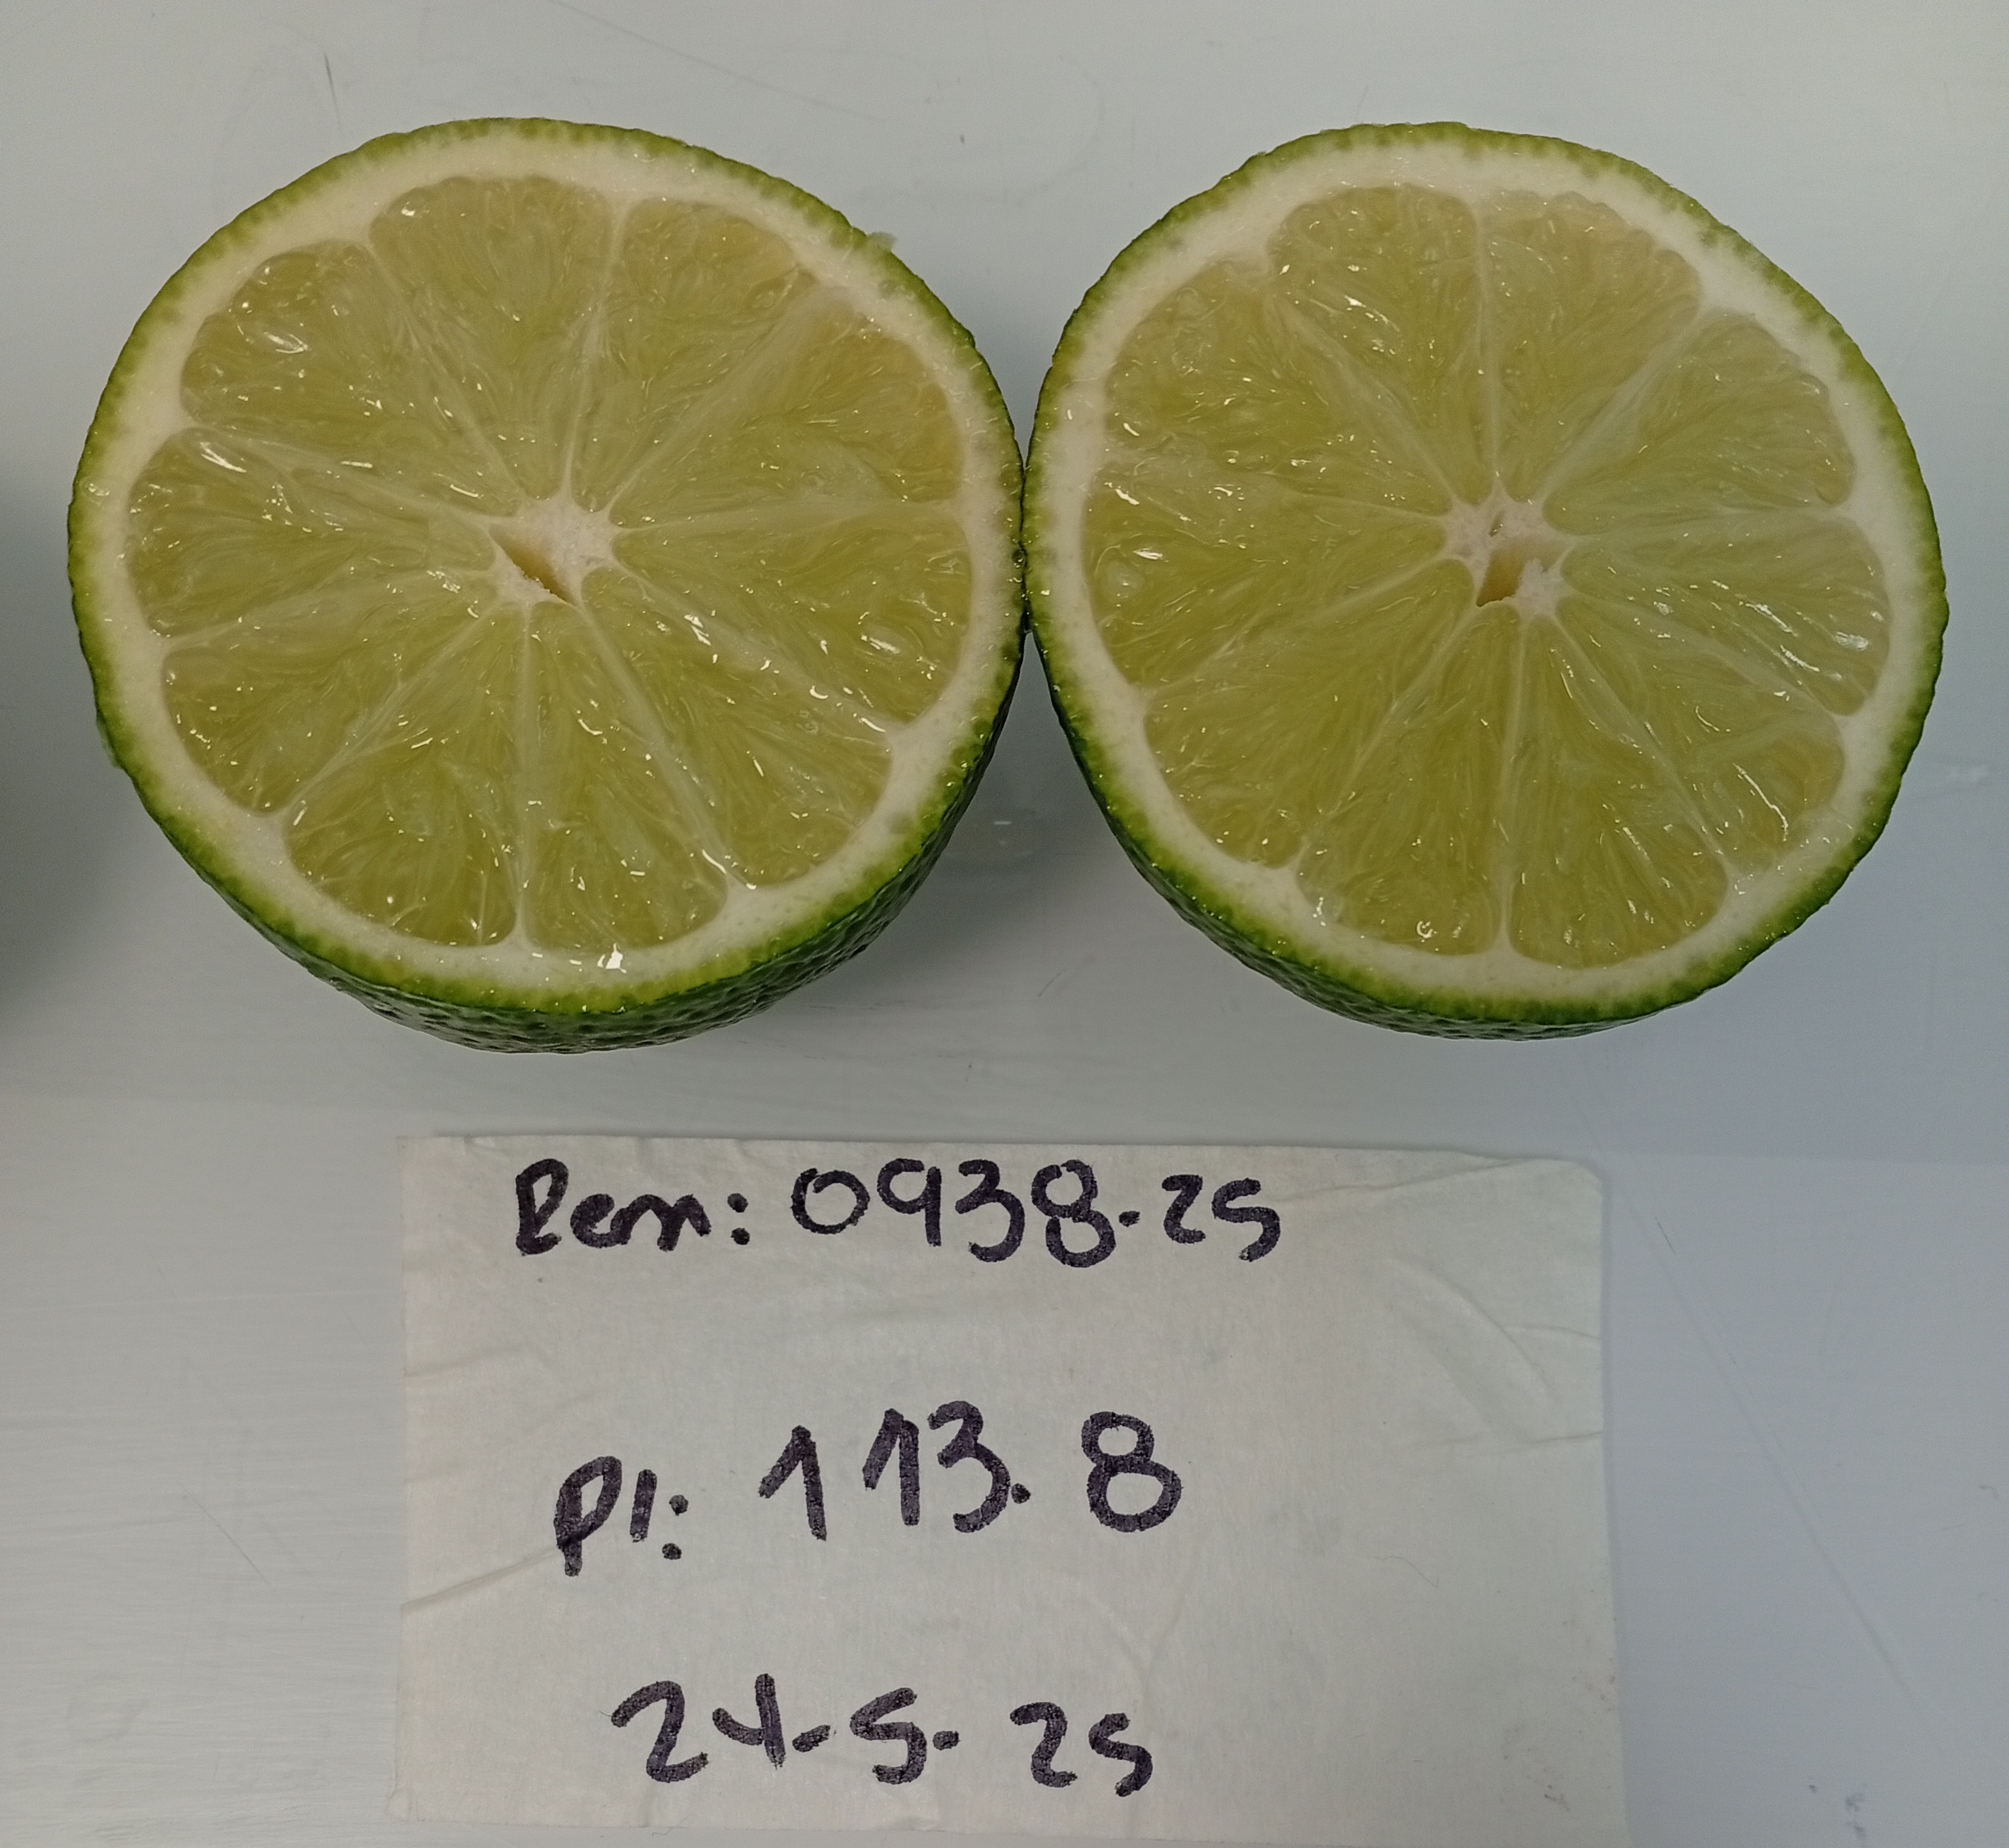 Rem: 0938-25
Pl: 113.8
24-5-25